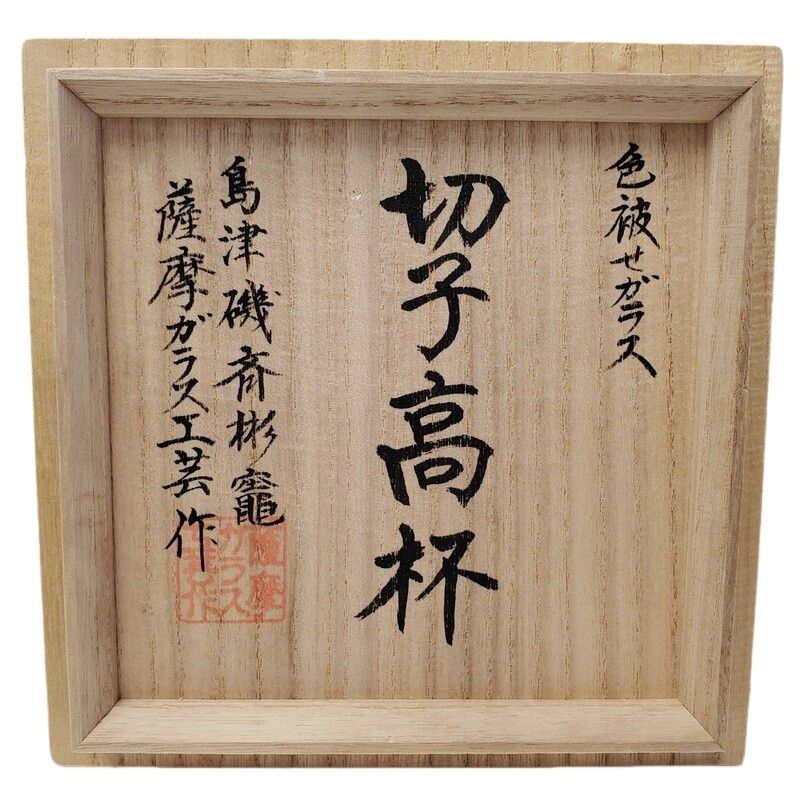 色被せガラス
切子高杯
島津磯斉彬竈
薩摩ガラス工芸作
薩摩
ガラス